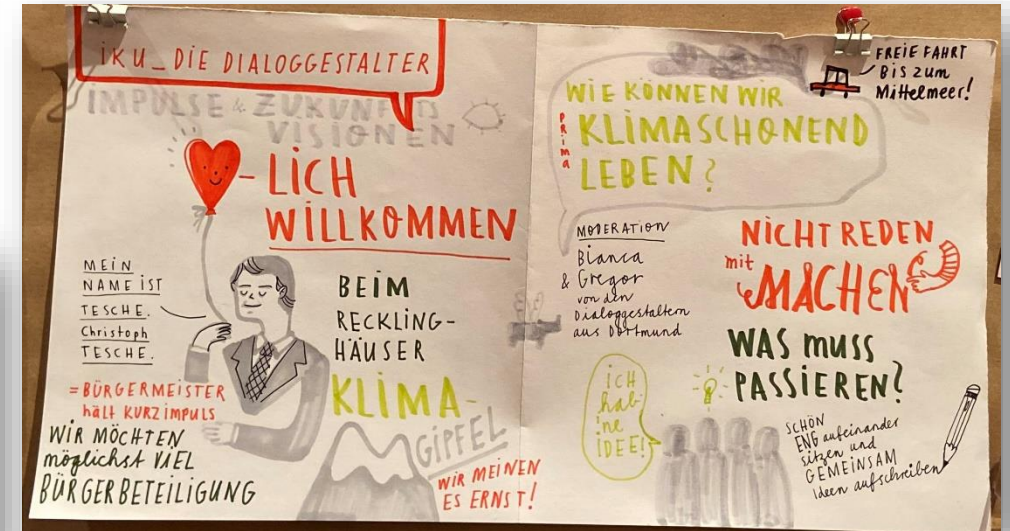 iKU_DIE DIALOGGESTALTER
IMPULSE & ZUKUNFTS
VISIONEN
-LICH
WILLKOMMEN
MEIN
NAME IST
TESCHE.
Christoph
TESCHE.
= BÜRGERMEISTER
hält KURZIMPULS
WIR MÖCHTEN
möglichst VIEL
BÜRGERBETEILIGUNG
BEIM
RECKLING-
HÄUSER
KLIMA-
GIPFEL
WIR MEINEN
ES ERNST!
FREIE FAHRT
Bis zum
Mittelmeer!
WIE KÖNNEN WIR
PRiMA
KLIMASCHONEND
LEBEN?
MODERATION
Bianca
& Gregor
von den
Dialoggestaltern
aus Dortmund
NICHT REDEN
mit
MACHEN
WAS MUSS
PASSIEREN?
iCH
hab
'ne
IDEE!
SCHÖN
ENG aufeinander
sitzen und
GEMEINSAM
Ideen aufschreiben